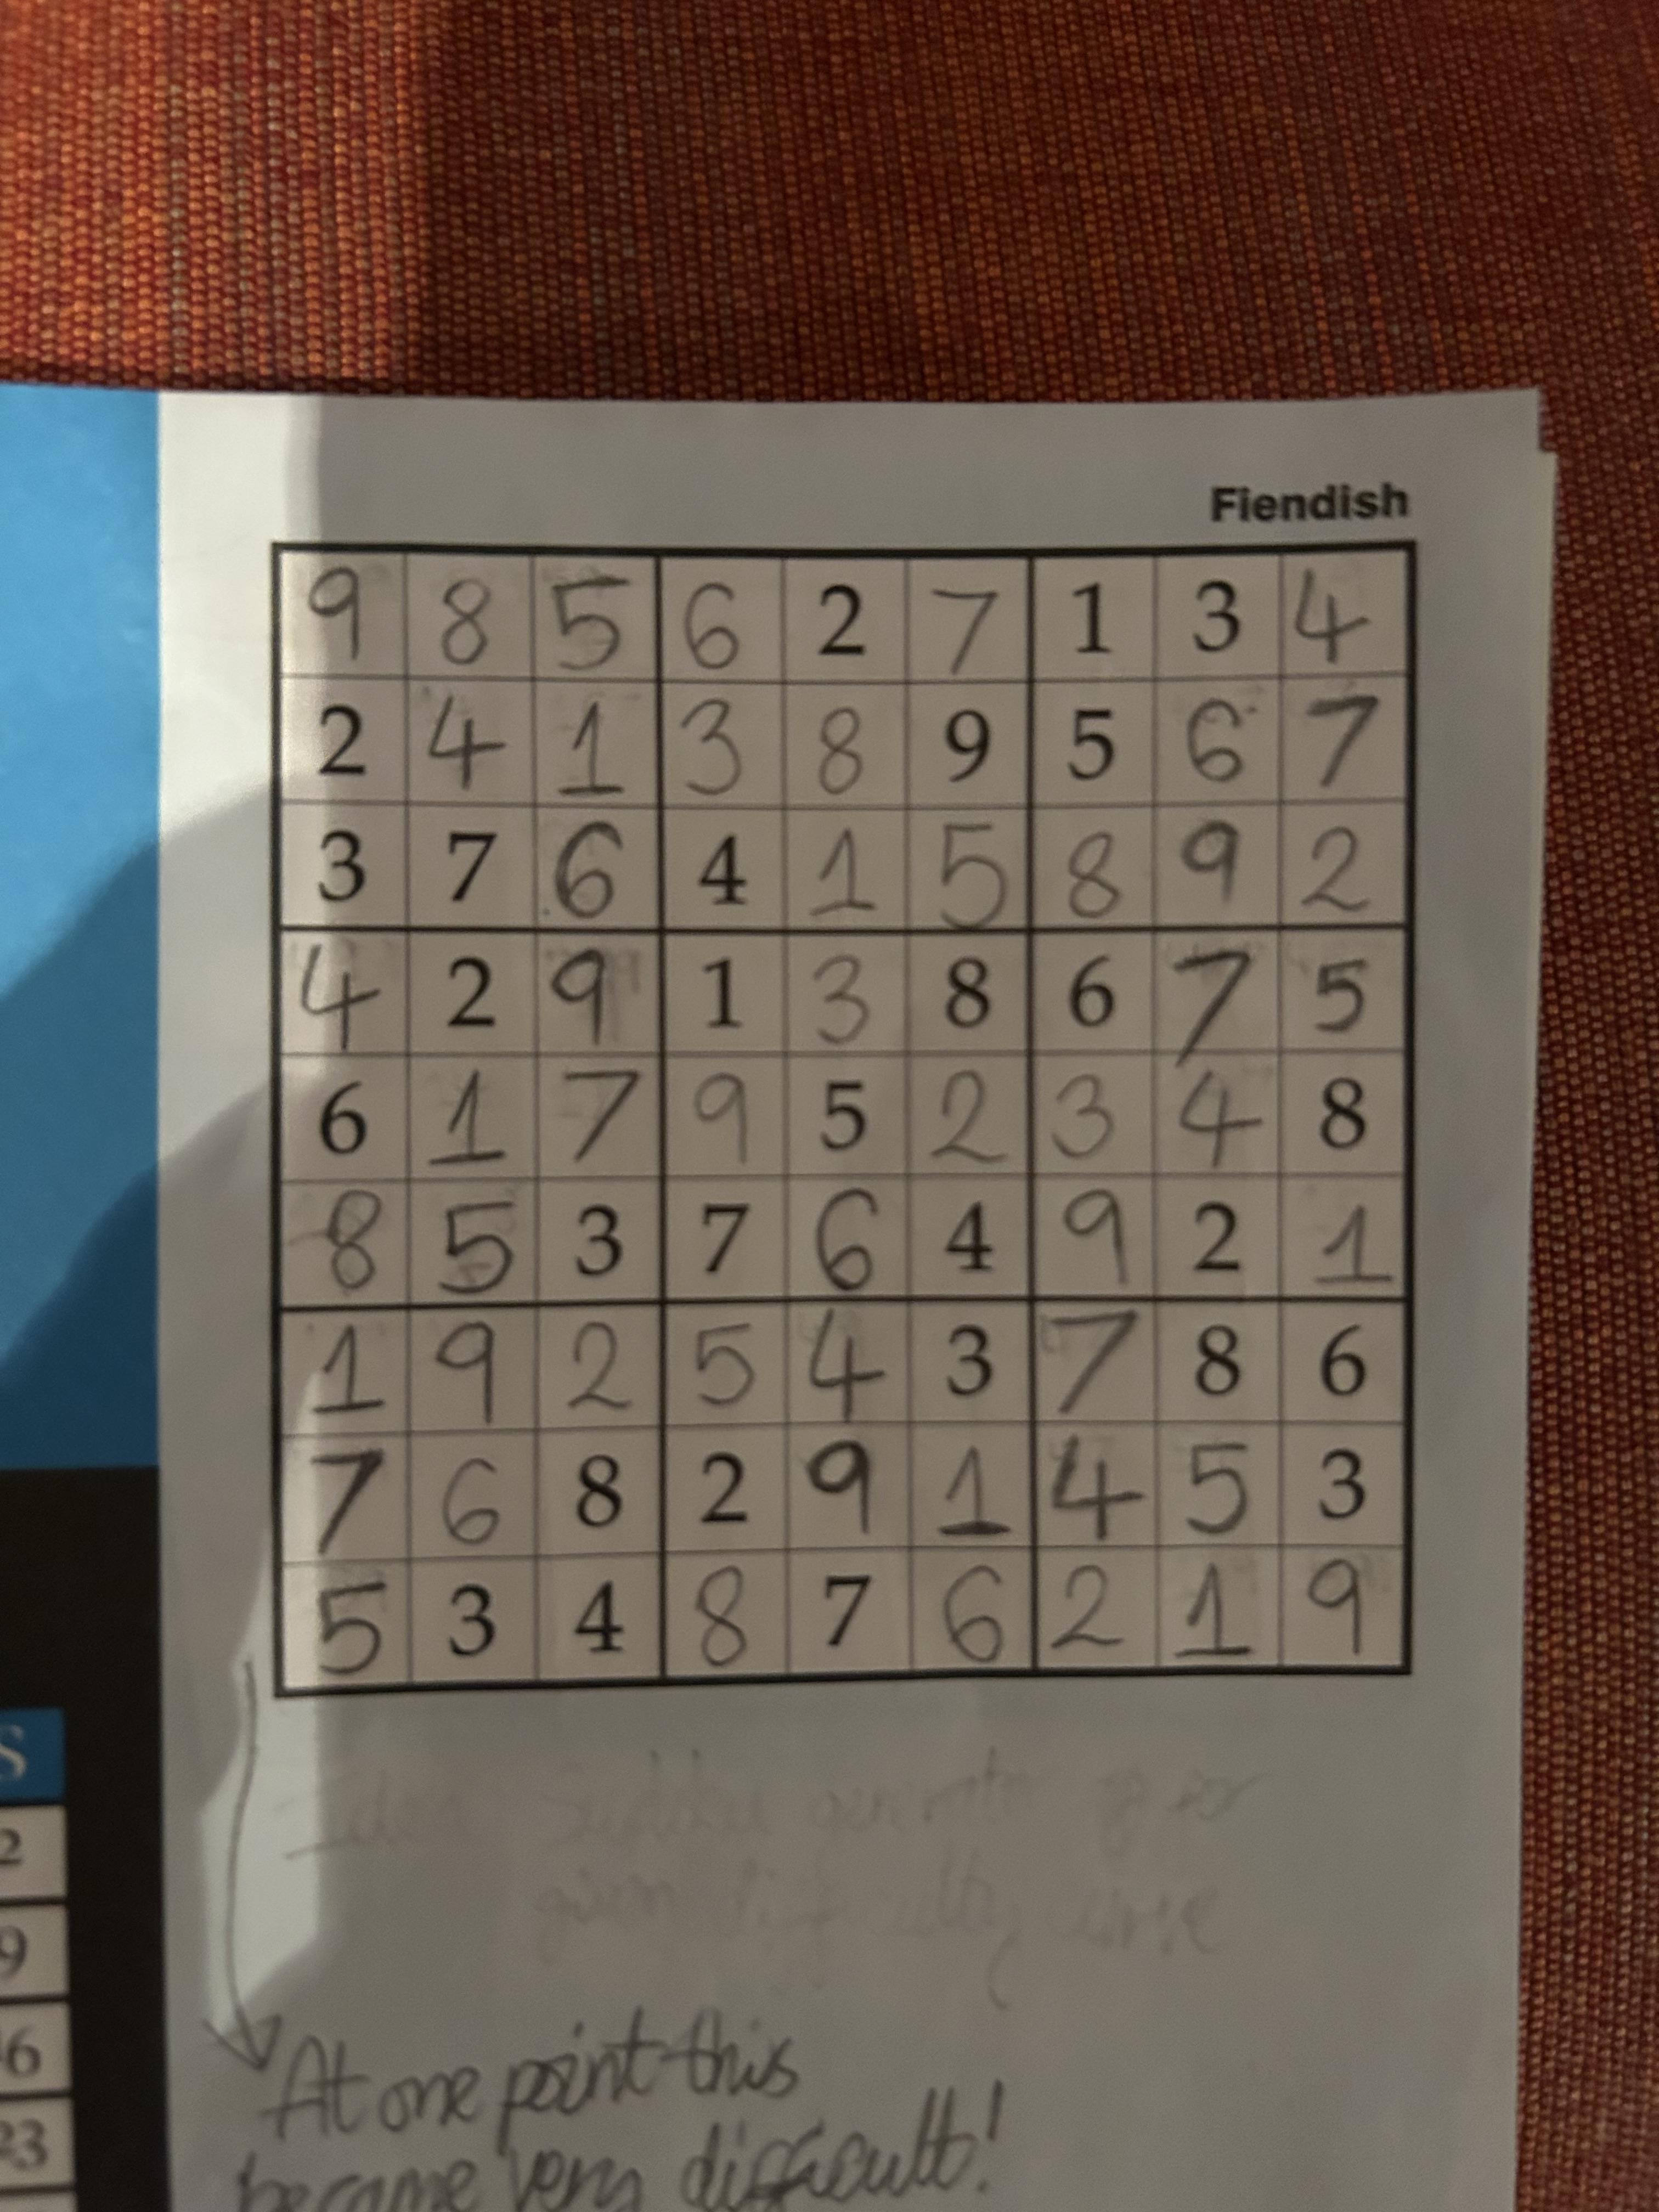 Fiendish
9 8 5 6 2 7 1 3 4
2 4 1 3 8 9 5 6 7
3 7 6 4 1 5 8 9 2
4 2 9 1 3 8 6 7 5
6 1 7 9 5 2 3 4 8
8 5 3 7 6 4 9 2 1
1 9 2 5 4 3 7 8 6
7 6 8 2 9 1 4 5 3
5 3 4 8 7 6 2 1 9
S
2
9
6
23
At one point this
became very difficult!